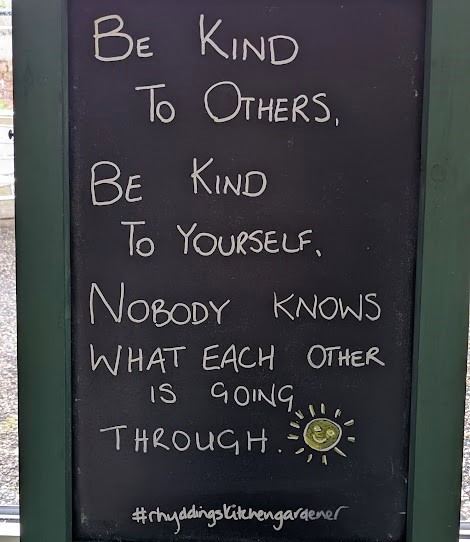 Be Kind
To Others,
Be Kind
To Yourself,
Nobody knows
what each other
is going
through.
#rhyddingskitchengardener